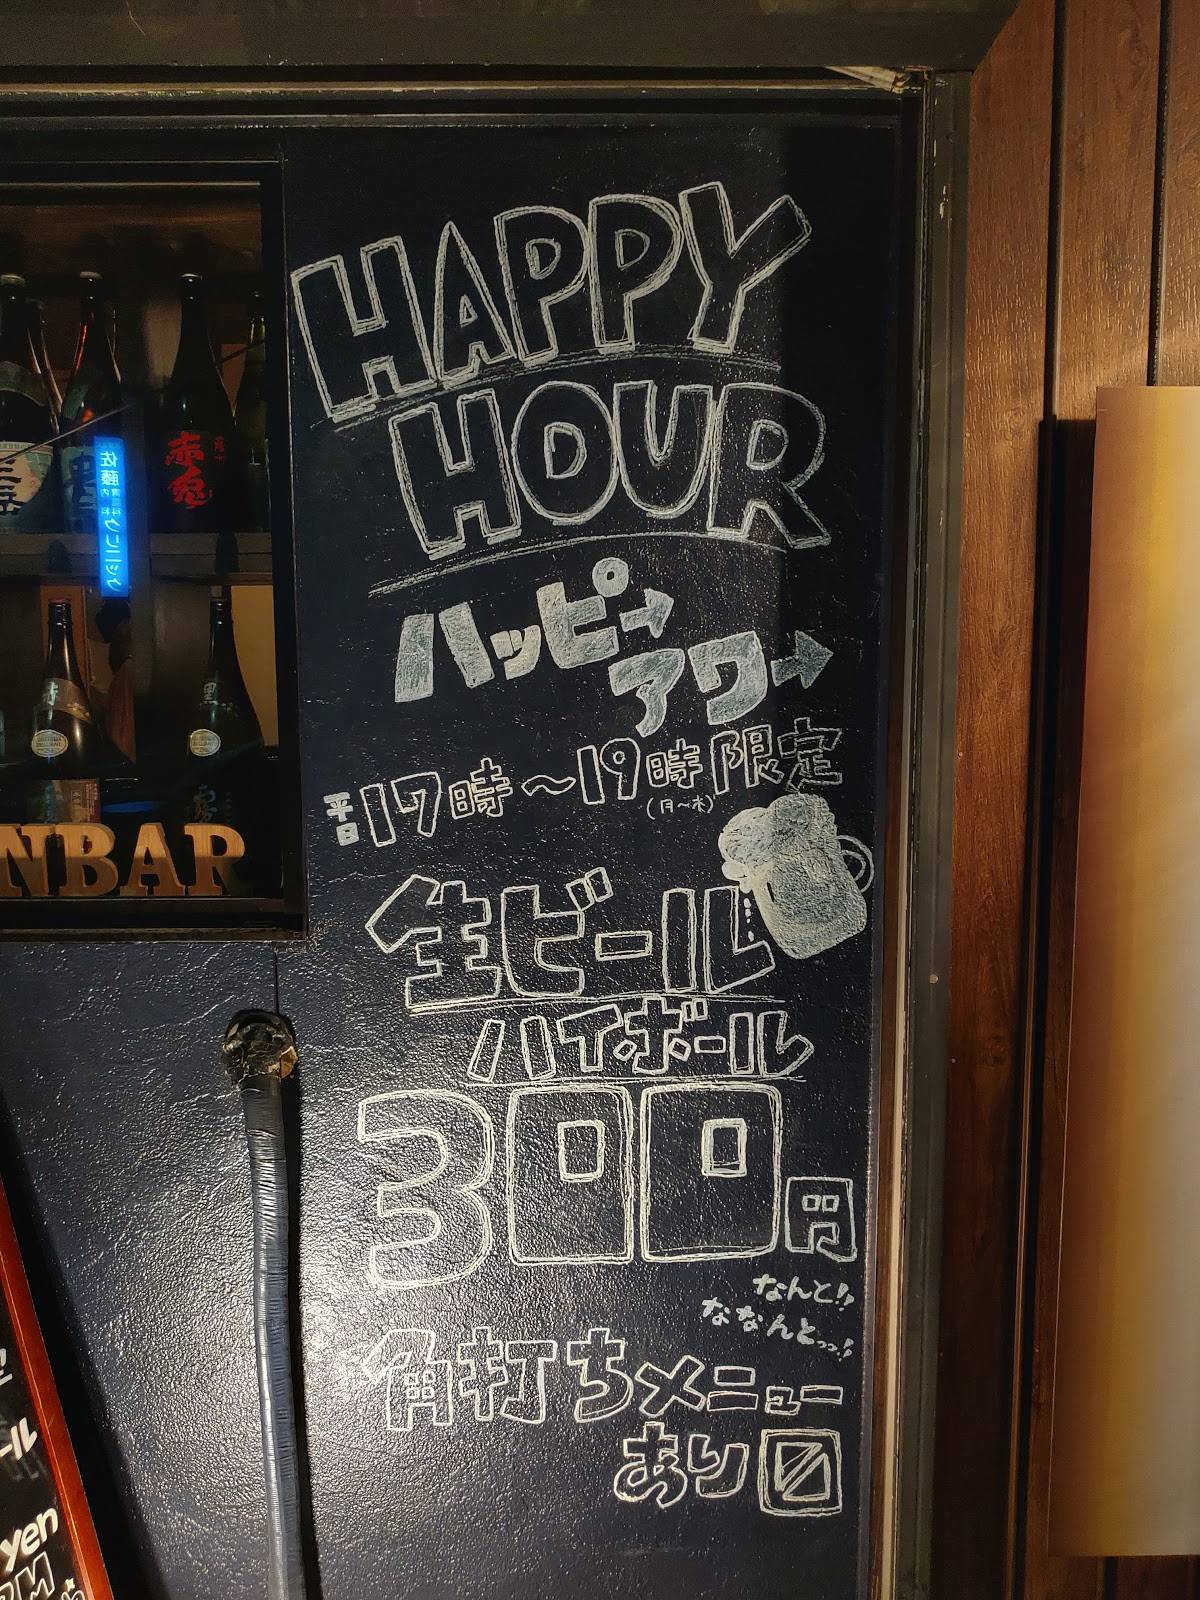 HAPPY
HOUR
ハッピー
アワー
平日17時～19時限定
(月～木)
生ビール
ハイボール
300円
なんと!!
ななんとっっ!!
角打ちメニュー
あり〼
佐藤
クリニック
赤兎
NBAR
ール
yen